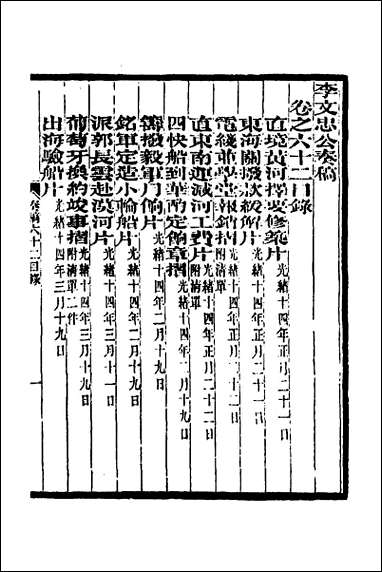 李文忠公奏稿
卷之六十二目錄
直境黃河擇要修築片 光緒十四年正月二十一日
東海關撥款緩解片 光緒十四年正月二十二日
電綫並學堂報銷摺 附清單 光緒十四年正月二十二日
直東南運減河工費片 附清單 光緒十四年正月二十二日
四快船到華酌定餉章摺 光緒十四年二月十九日
籌撥毅軍月餉片 光緒十四年二月十九日
銘軍定造小輪船片 光緒十四年二月十九日
派郭長雲赴漠河片 光緒十四年三月十一日
葡萄牙換約竣事摺 附清單二件 光緒十四年三月十九日
出海驗船片 光緒十四年三月十九日
奏稿六十二目錄
一